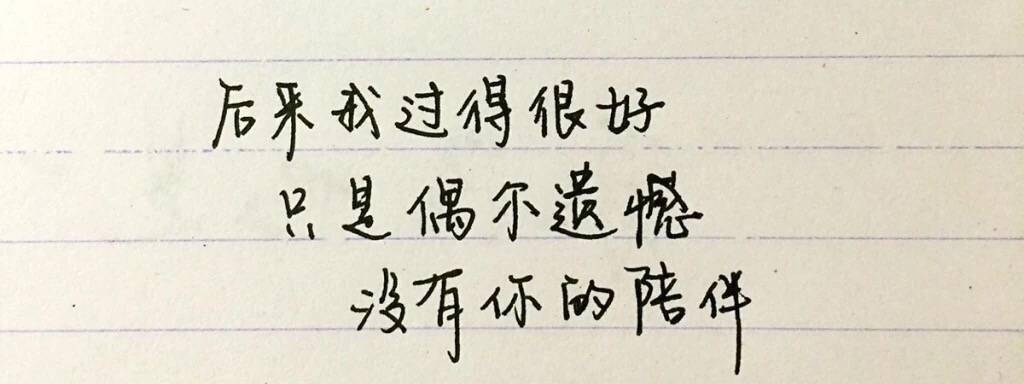 后来我过得很好
只是偶尔遗憾
没有你的陪伴